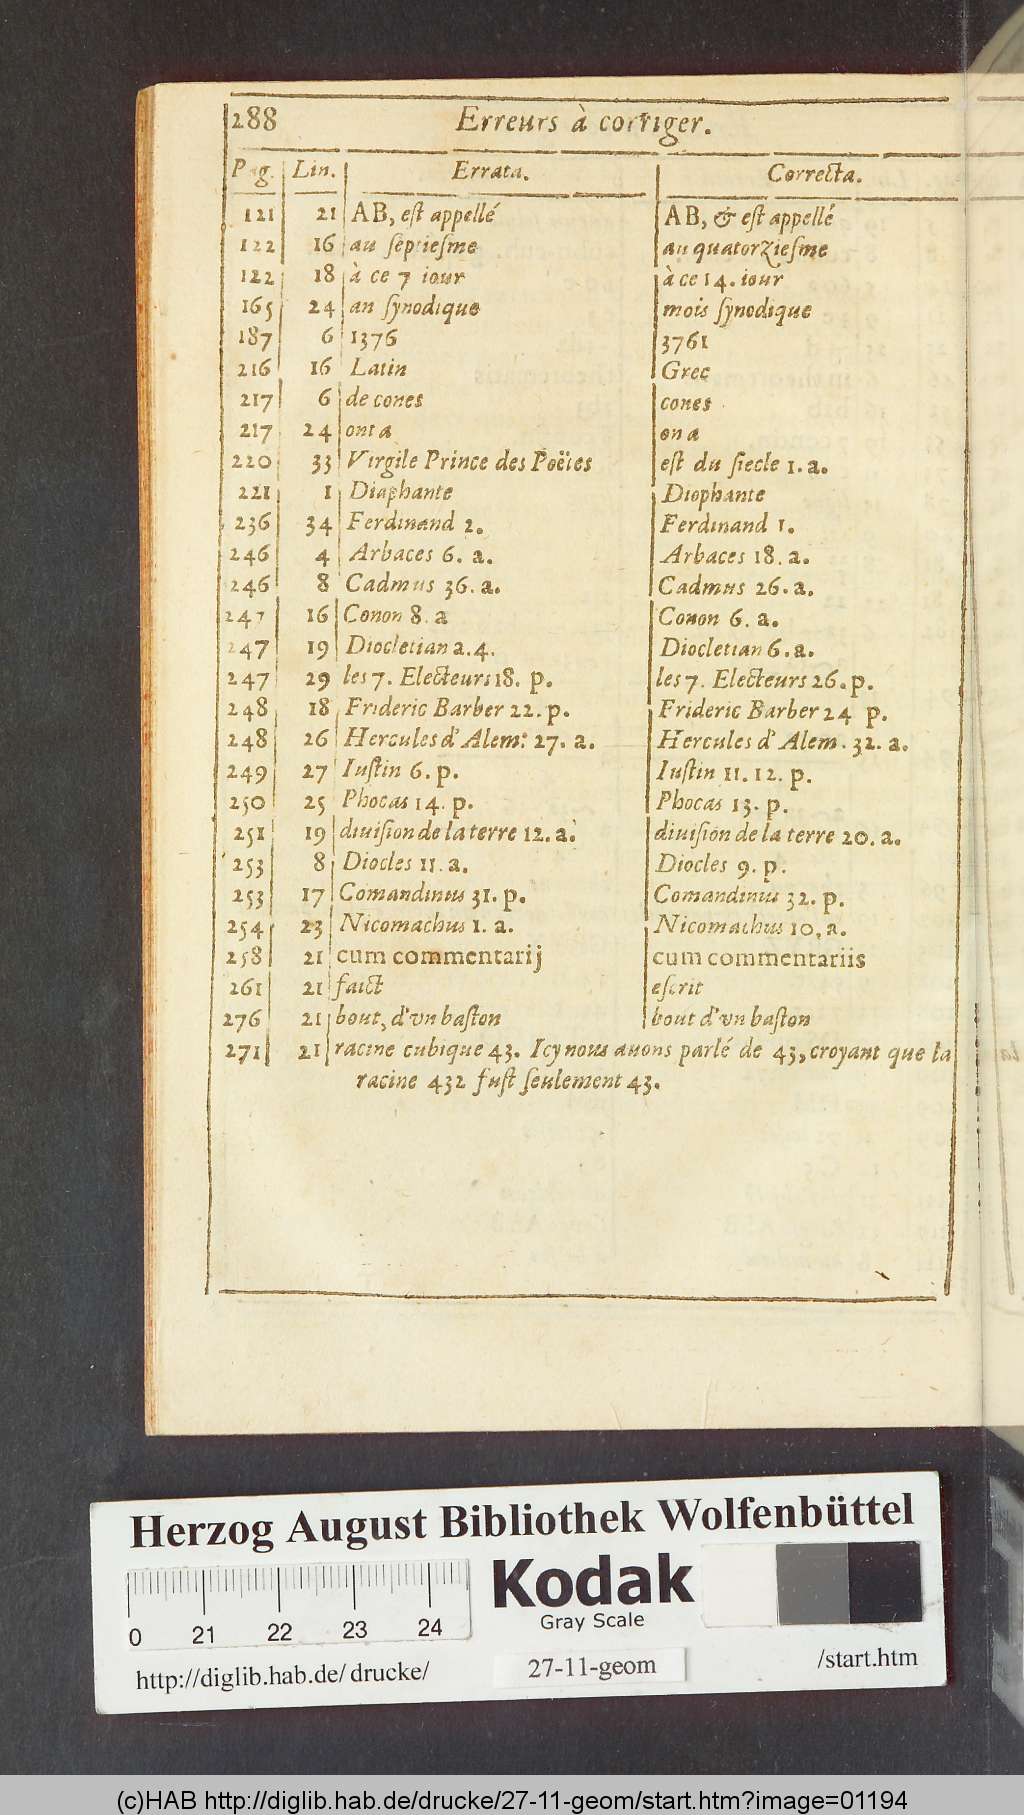 288 Erreurs à corriger.
Pag. Lin. Errata. Correcta.
121 21 AB, eſt appellé AB, & eſt appellé
122 16 au ſeptieſme au quatorzieſme
122 18 à ce 7 iour à ce 14. iour
165 24 an ſynodique mois ſynodique
187 6 1376 3761
216 16 Latin Grec
217 6 de cones cones
217 24 ont a on a
220 33 Virgile Prince des Poëtes eſt du ſiecle 1. a.
221 1 Diaphante Diophante
236 34 Ferdinand 2. Ferdinand 1.
246 4 Arbaces 6. a. Arbaces 18. a.
246 8 Cadmus 36. a. Cadmus 26. a.
247 16 Conon 8. a Conon 6. a.
247 19 Diocletian a. 4. Diocletian 6. a.
247 29 les 7. Electeurs 18. p. les 7. Electeurs 26. p.
248 18 Frideric Barber 22. p. Frideric Barber 24 p.
248 26 Hercules d'Alem: 27. a. Hercules d'Alem. 32. a.
249 27 Iuſtin 6. p. Iuſtin 11. 12. p.
250 25 Phocas 14. p. Phocas 13. p.
251 19 diuiſion de la terre 12. a. diuiſion de la terre 20. a.
253 8 Diocles 11. a. Diocles 9. p.
253 17 Comandinus 31. p. Comandinus 32. p.
254 23 Nicomachus 1. a. Nicomachus 10, a.
258 21 cum commentarij cum commentariis
261 21 faict eſcrit
276 21 bout, d'vn baſton bout d'vn baſton
271 21 racine cubique 43. Icy nous auons parlé de 43, croyant que la
racine 432 fuſt ſeulement 43.
Herzog August Bibliothek Wolfenbüttel
0 21 22 23 24
Kodak
Gray Scale
http://diglib.hab.de/drucke/ 27-11-geom /start.htm
(c)HAB http://diglib.hab.de/drucke/27-11-geom/start.htm?image=01194